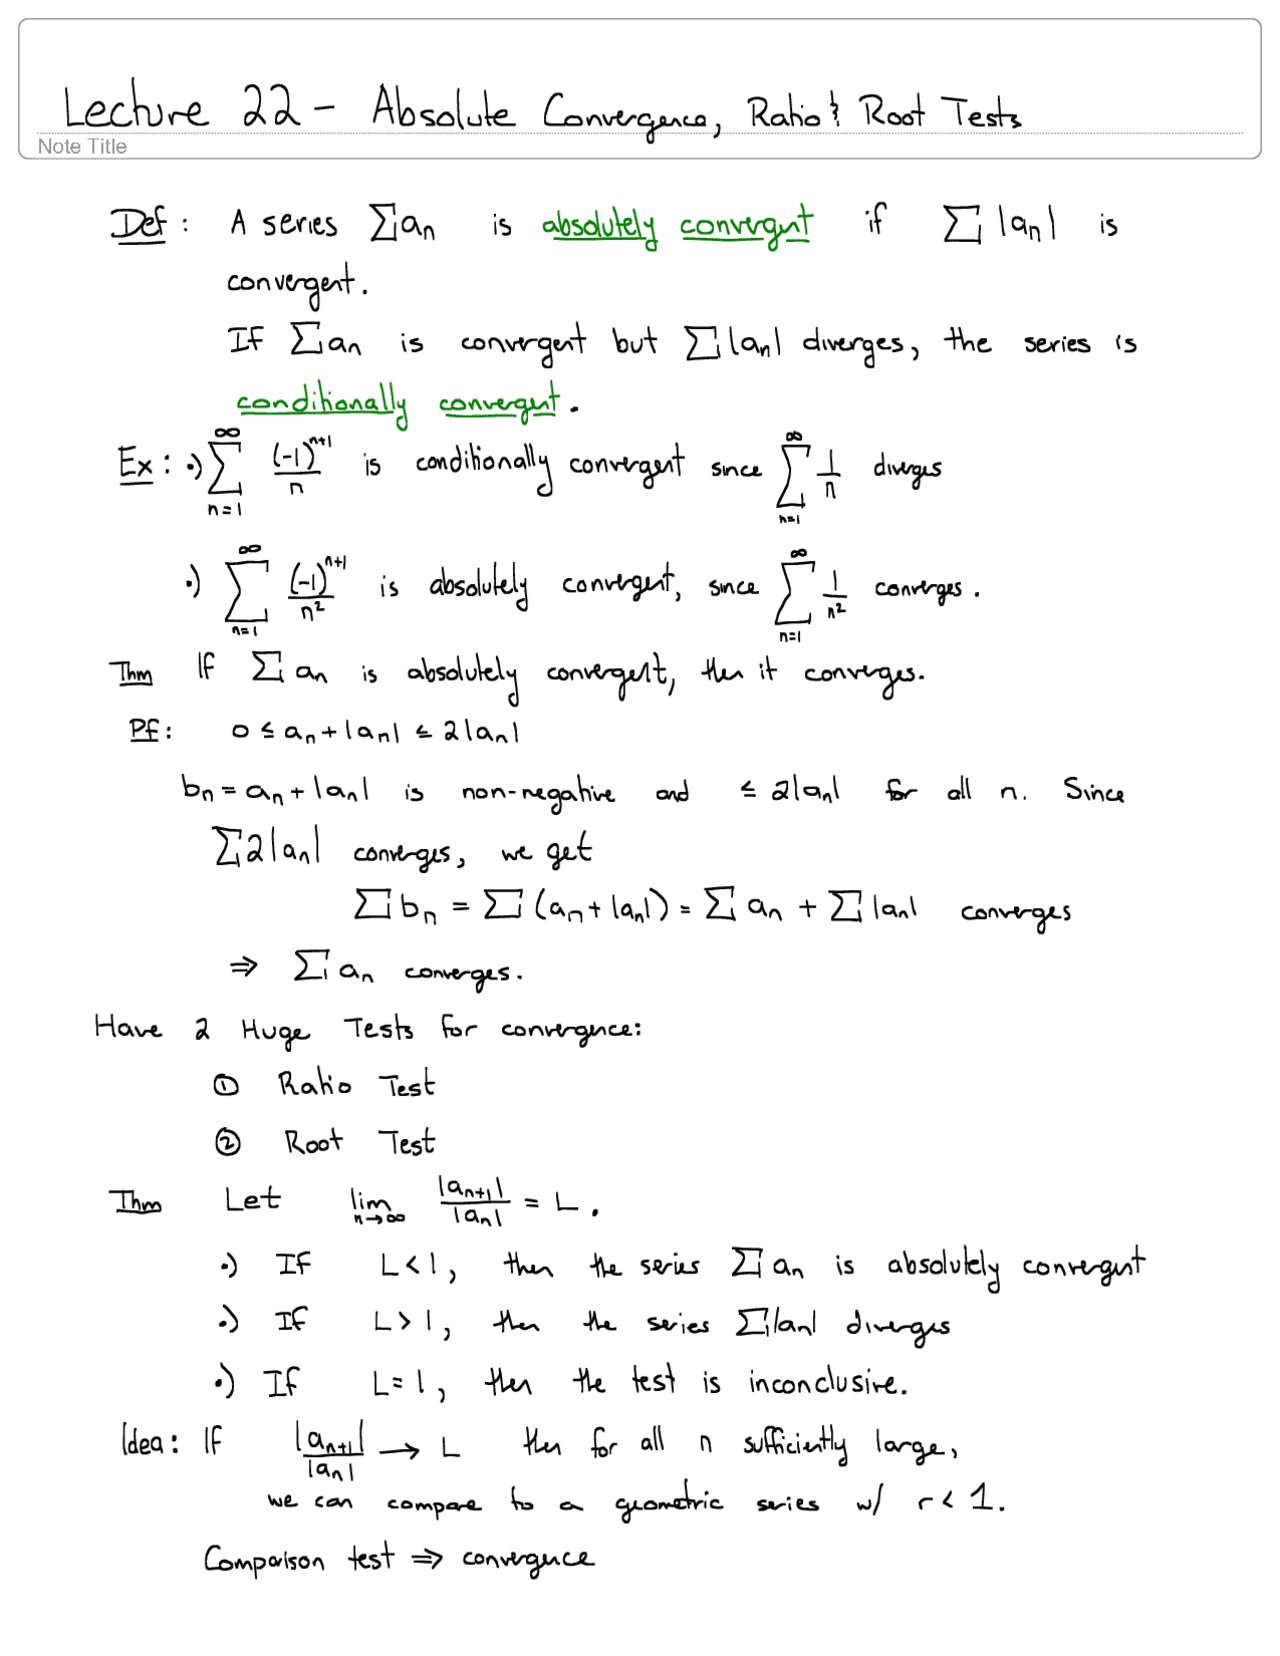 Lecture 22 - Absolute Convergence, Ratio & Root Tests
Note Title
Def: A series ∑aₙ is absolutely convergent if ∑|aₙ| is
convergent.
If ∑aₙ is convergent but ∑|aₙ| diverges, the series is
conditionally convergent.
Ex: •) ∑_{n=1}^{∞} (-1)^{n+1}/n is conditionally convergent since ∑_{n=1}^{∞} 1/n diverges
•) ∑_{n=1}^{∞} (-1)^{n+1}/n² is absolutely convergent, since ∑_{n=1}^{∞} 1/n² converges.
Thm If ∑aₙ is absolutely convergent, then it converges.
Pf: 0 ≤ aₙ+|aₙ| ≤ 2|aₙ|
bₙ = aₙ+|aₙ| is non-negative and ≤ 2|aₙ| for all n. Since
∑2|aₙ| converges, we get
∑bₙ = ∑(aₙ+|aₙ|) = ∑aₙ + ∑|aₙ| converges
⇒ ∑aₙ converges.
Have 2 Huge Tests for convergence:
① Ratio Test
② Root Test
Thm Let lim_{n→∞} |aₙ₊₁|/|aₙ| = L.
•) If L<1, then the series ∑aₙ is absolutely convergent
•) If L>1, then the series ∑|aₙ| diverges
•) If L=1, then the test is inconclusive.
Idea: If |aₙ₊₁|/|aₙ| → L then for all n sufficiently large,
we can compare to a geometric series w/ r<1.
Comparison test ⇒ convergence